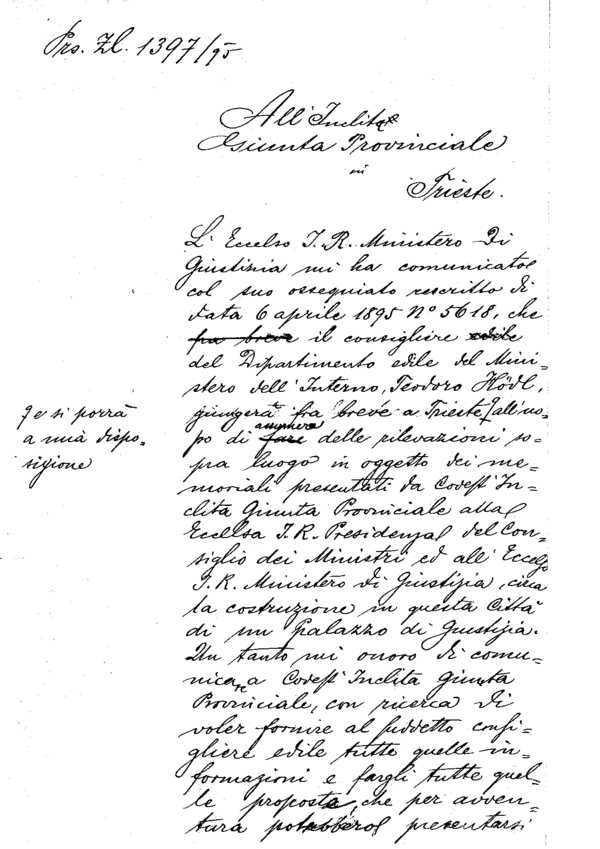 Prs. Zl. 1397/95
All'Inclita
Giunta Provinciale
in
Trieste.
L'Eccelso I. R. Ministero di
Giustizia mi ha comunicato
col suo ossequiato rescritto di
data 6 aprile 1895 No 5618, che
fra breve il consigliere edile
del Dipartimento edile del Mini=
stero dell'Interno, Teodoro Hödl,
giungerà fra breve a Trieste [all'uo=
e si porrà
a mia dispo=
sizione
po di fare assumere delle rilevazioni so=
pra luogo in oggetto dei me=
moriali presentati da Codest'In=
clita Giunta Provinciale alla
Eccelsa I. R. Presidenza del Con=
siglio dei Ministri ed all'Eccelso
I. R. Ministero di Giustizia, circa
la costruzione in questa Città
di un Palazzo di Giustizia.
Un tanto mi onoro di comu=
nicare a Codest'Inclita Giunta
Provinciale, con ricerca di
voler fornire al suddetto consi=
gliere edile tutte quelle in=
formazioni e fargli tutte quel=
le proposte, che per avven=
tura potrebbero presentarsi